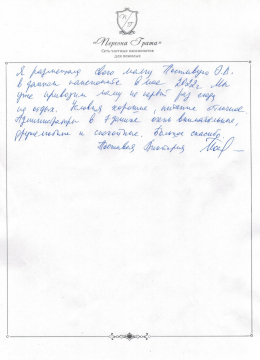 «Персона Грата»
Сеть частных пансионатов
для пожилых
Я разместила свою маму О.А.
в данном пансионате в мае 2022г. Мы
уже приводим маму не первый раз сюда
на отдых. Условия хорошие, питание отличное
Администратор в 1 данном очень внимательные,
дружелюбные и спокойные. Большое спасибо
Виктория